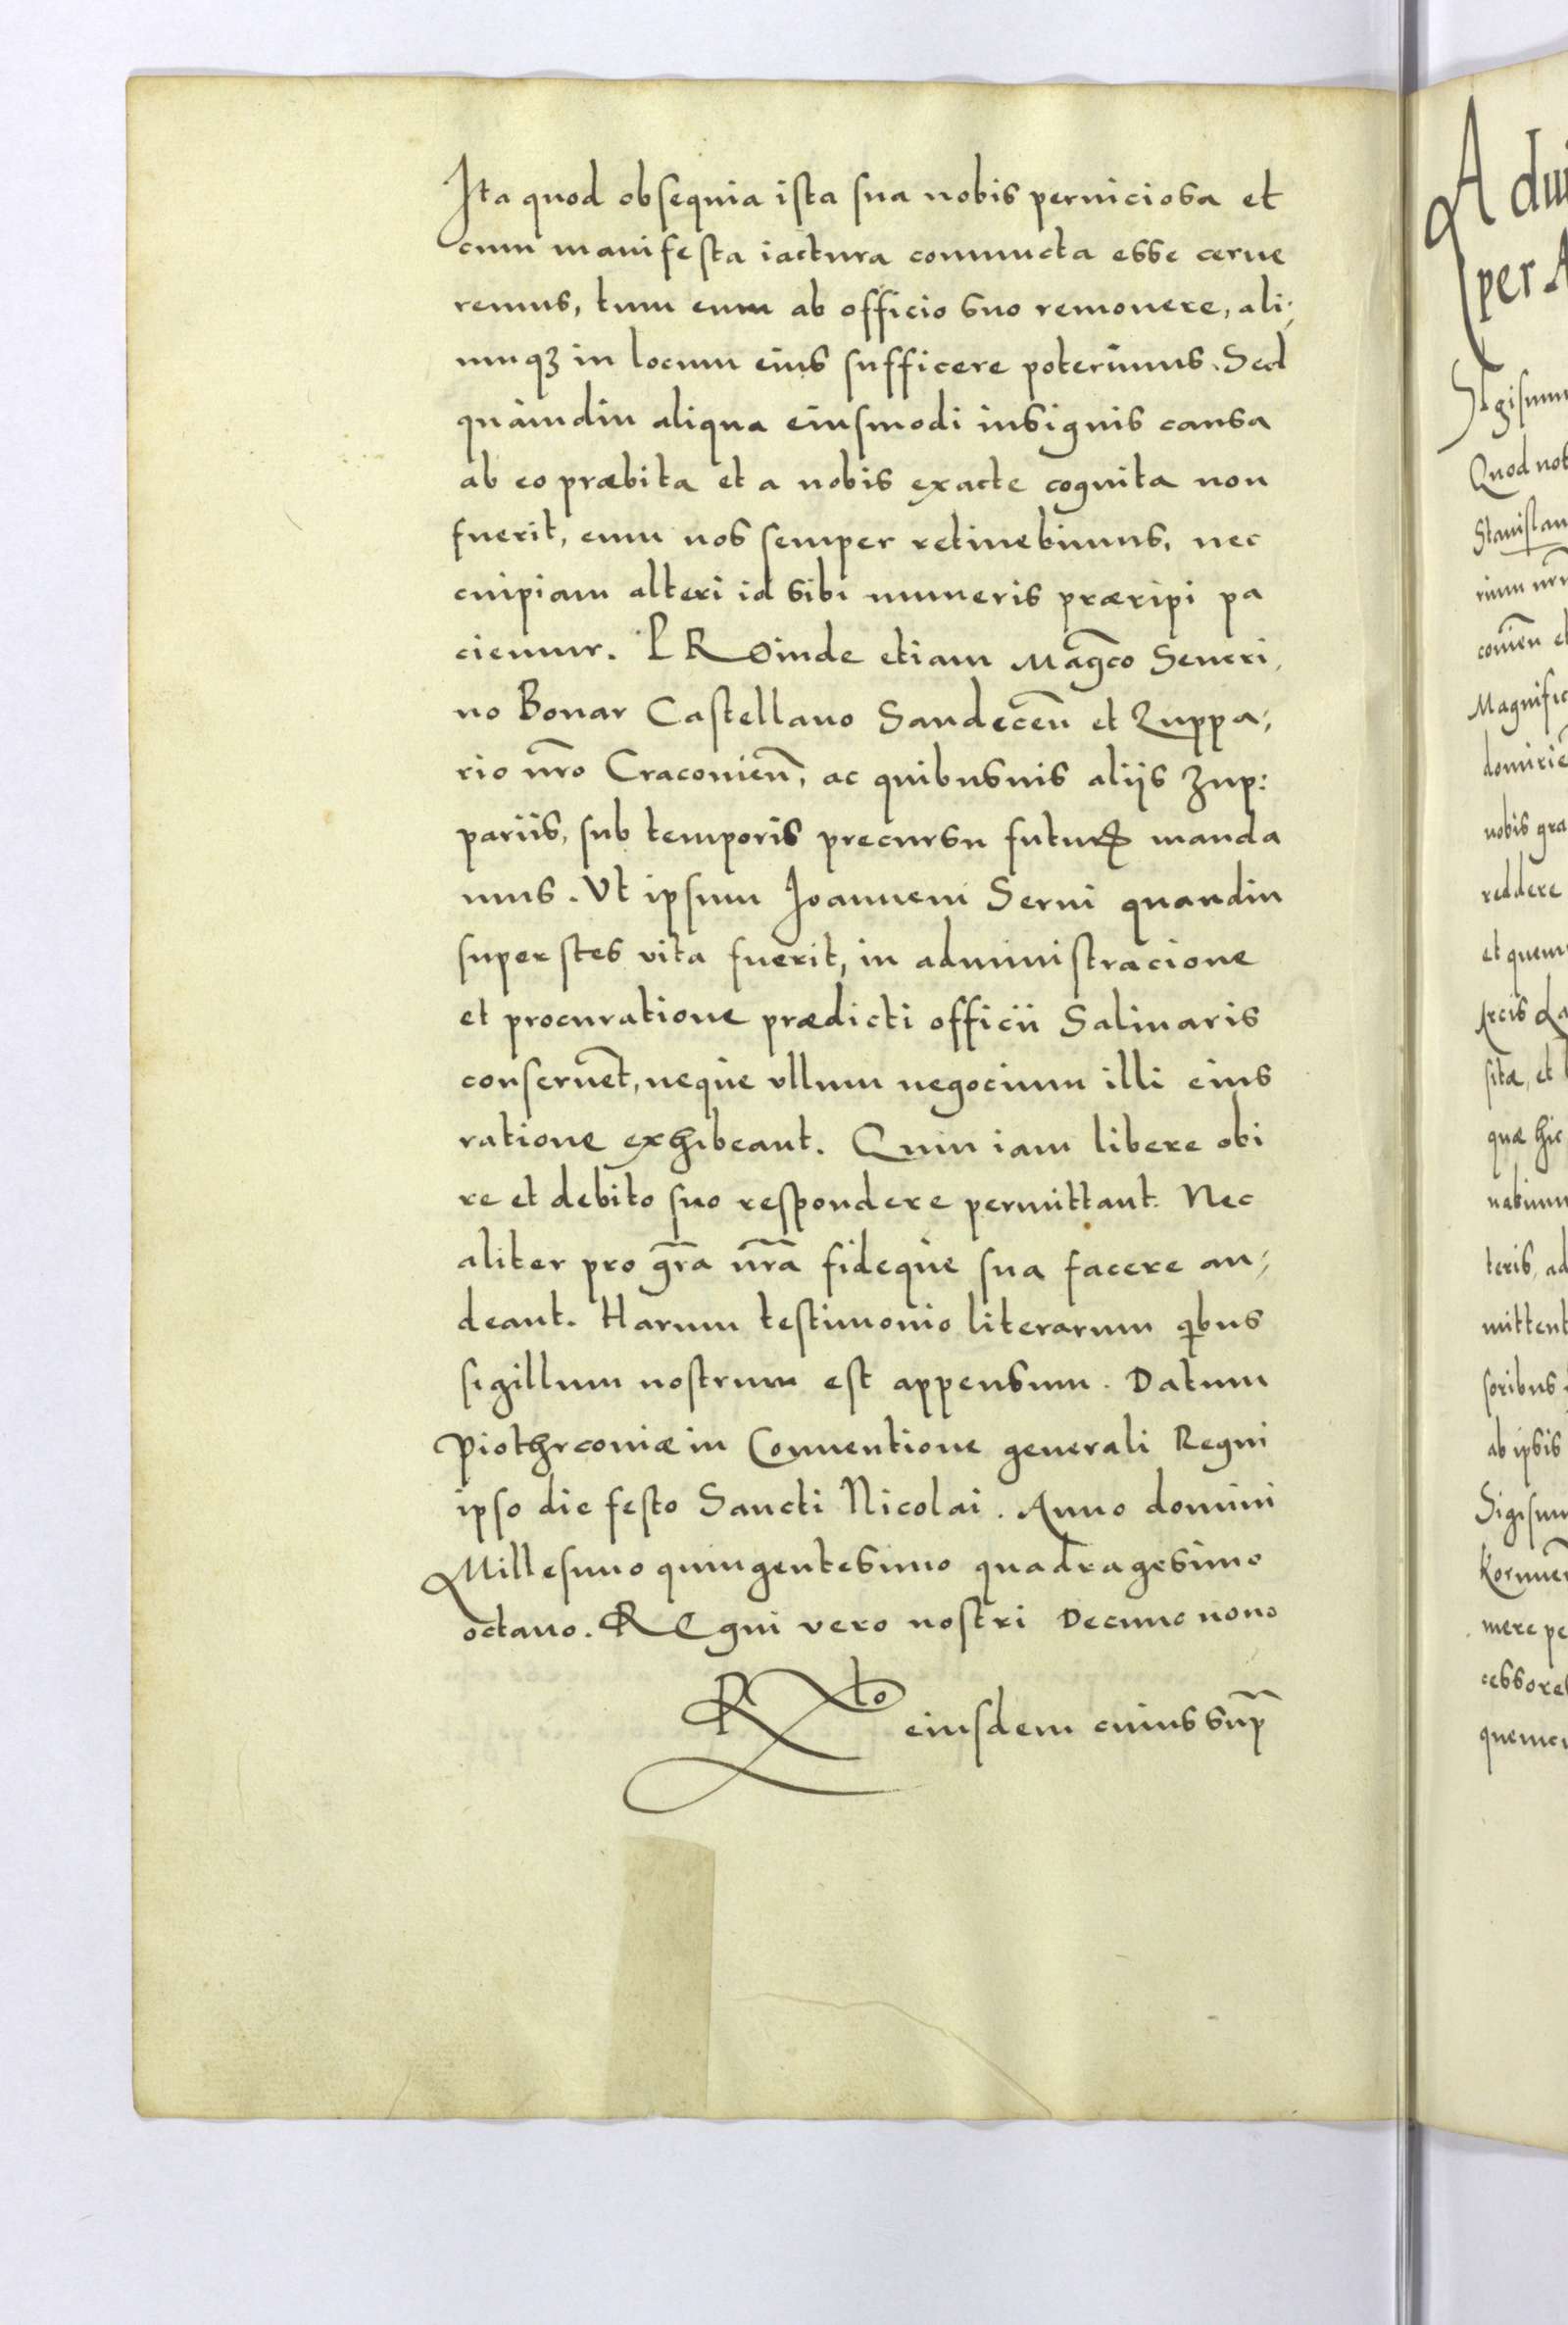 Ita quod obsequia ista sua nobis perniciosa et
cum manifesta iactura coniuncta esse cerne
remus, tum eum ab officio suo remouere, ali⸗
umqꝫ in locum eius sufficere poterimus. Sed
quàmdiu aliqua eiusmodi insignis causa
ab eo præbita et a nobis exacte cognita non
fuerit, eum nos semper retinebimus, nec
cuipiam alteri id sibi muneris præripi pa
ciemur. PROinde etiam Mag̃co Seueri,
no Bonar Castellano Sandeceñ et Zuppa,
rio nr̃o Cracouieñ, ac quibusuis aliis Zup:
pariis, sub temporis precursu futurꝝ manda
mus. Vt ipsum Joannem Serui quandiu
superstes vita fuerit, in administracione
et procuratione prædicti officii Salinaris
conseruẽt, neque vllum negocium illi eius
ratione exhibeant. Quin iam libere obi
re et debito suo respondere permittant. Nec
aliter pro gr̃a nr̃a fideque sua facere au⸗
deant. Harum testimonio literarum qibus
sigillum nostrum est appensum. Datum
Piothrcouiæ in Conuentione generali Regni
ipso die festo Sancti Nicolai. Anno domini
Millesimo quingentesimo quadragesimo
octauo. REgni vero nostri Decimo nono
Rto eiusdem cuius sup̃
A dui
per A
Sigismun
Quod not
Stanislau
rium nr̃
couieñ et
Magnific
domirie
nobis gra
reddere
et quem
Arcis La
sitæ, et
quæ hic
nabimu
teris, ad
mittent
soribus
ab ipsis
Sigismu
Kornieñ
mere pe
cessores
quemcu